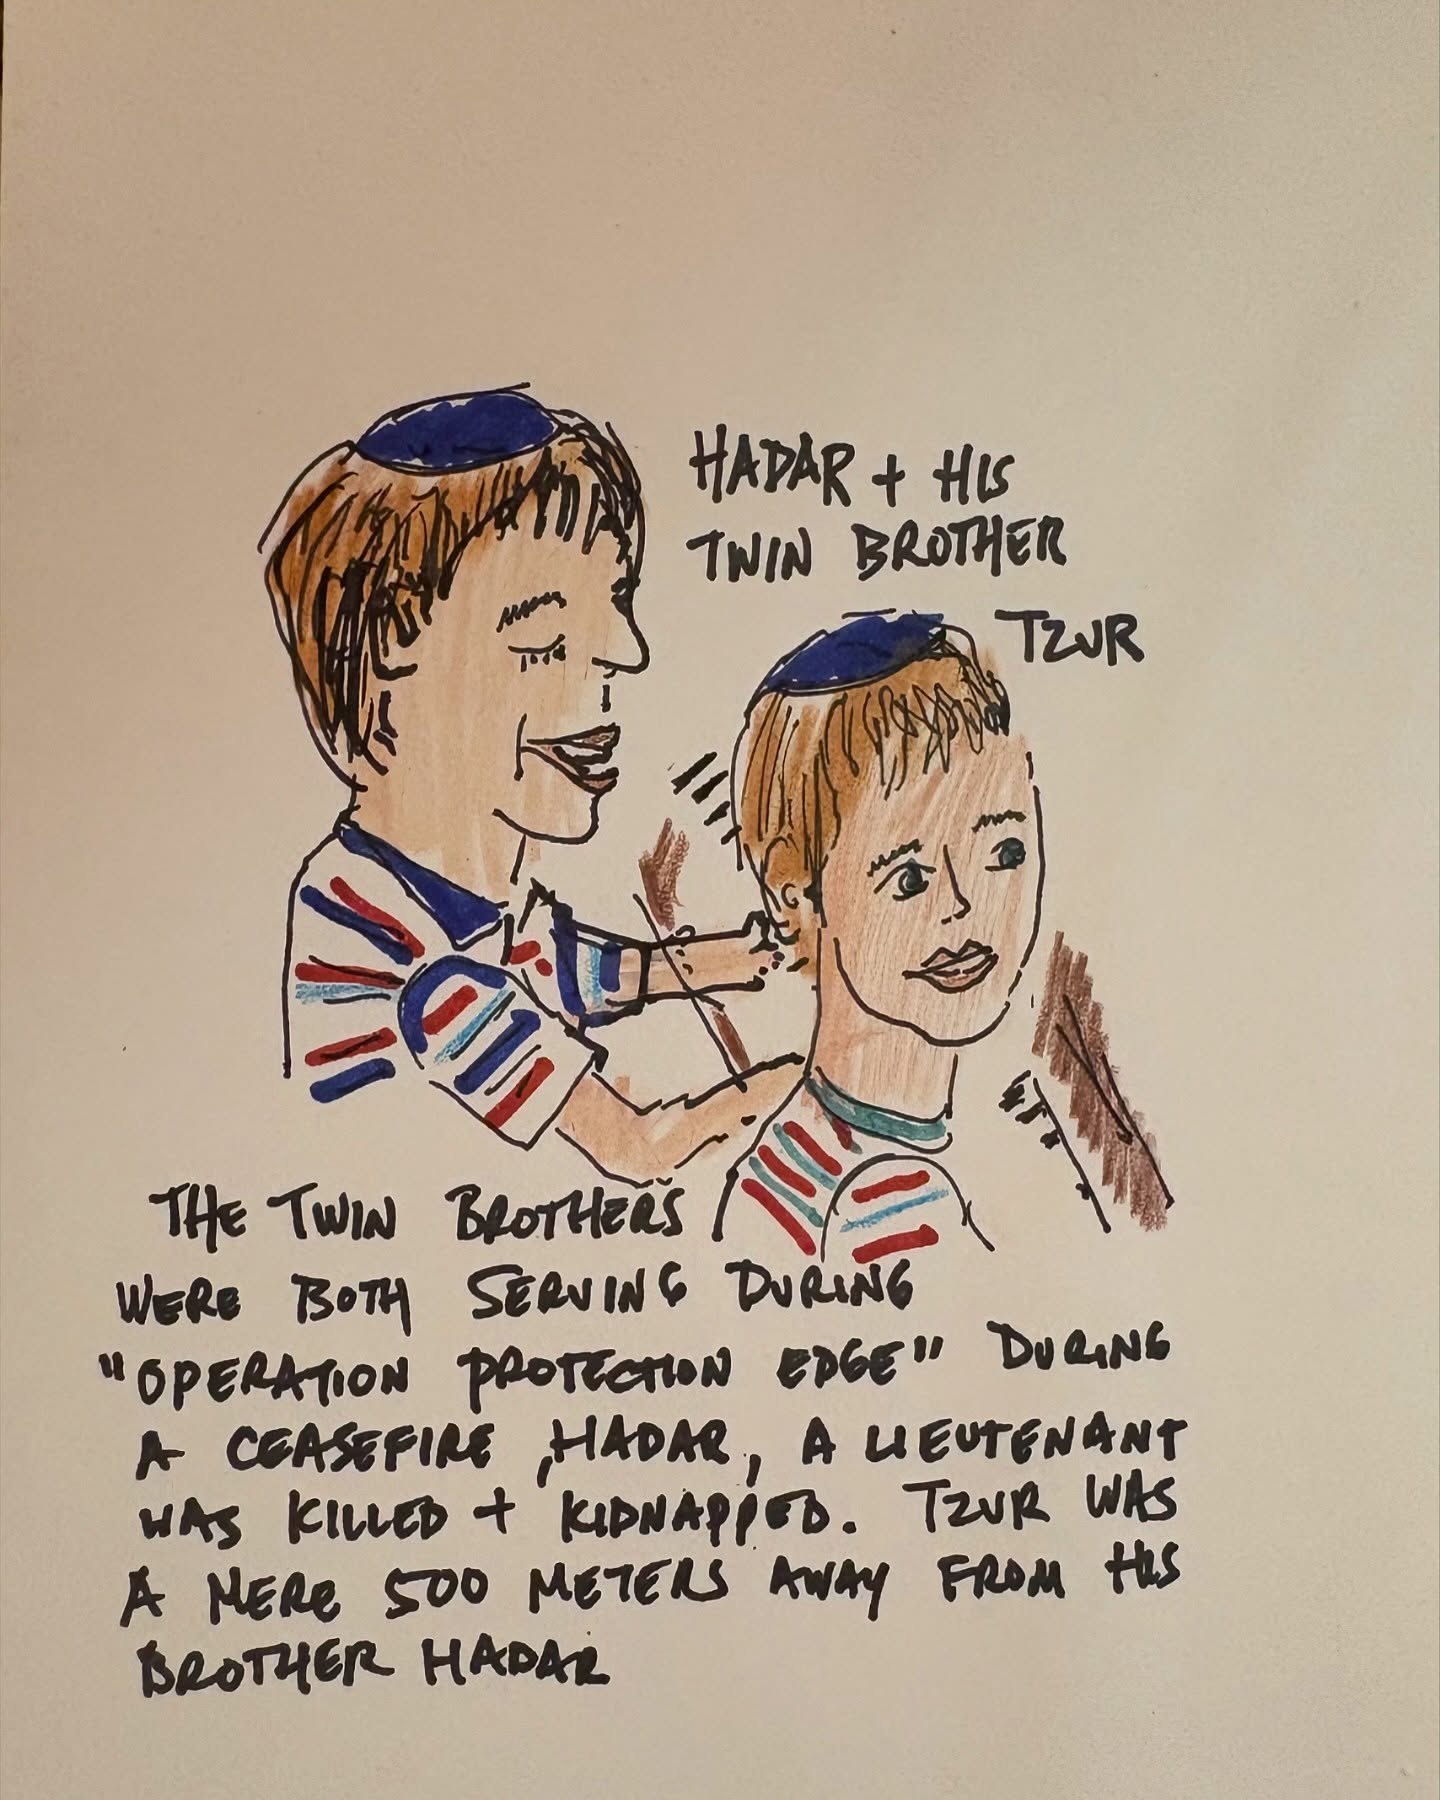 HADAR + HIS
TWIN BROTHER
TZUR
THE TWIN BROTHERS
WERE BOTH SERVING DURING
"OPERATION PROTECTION EDGE" DURING
A CEASEFIRE, HADAR, A LIEUTENANT
WAS KILLED + KIDNAPPED. TZUR WAS
A MERE 500 METERS AWAY FROM HIS
BROTHER HADAR